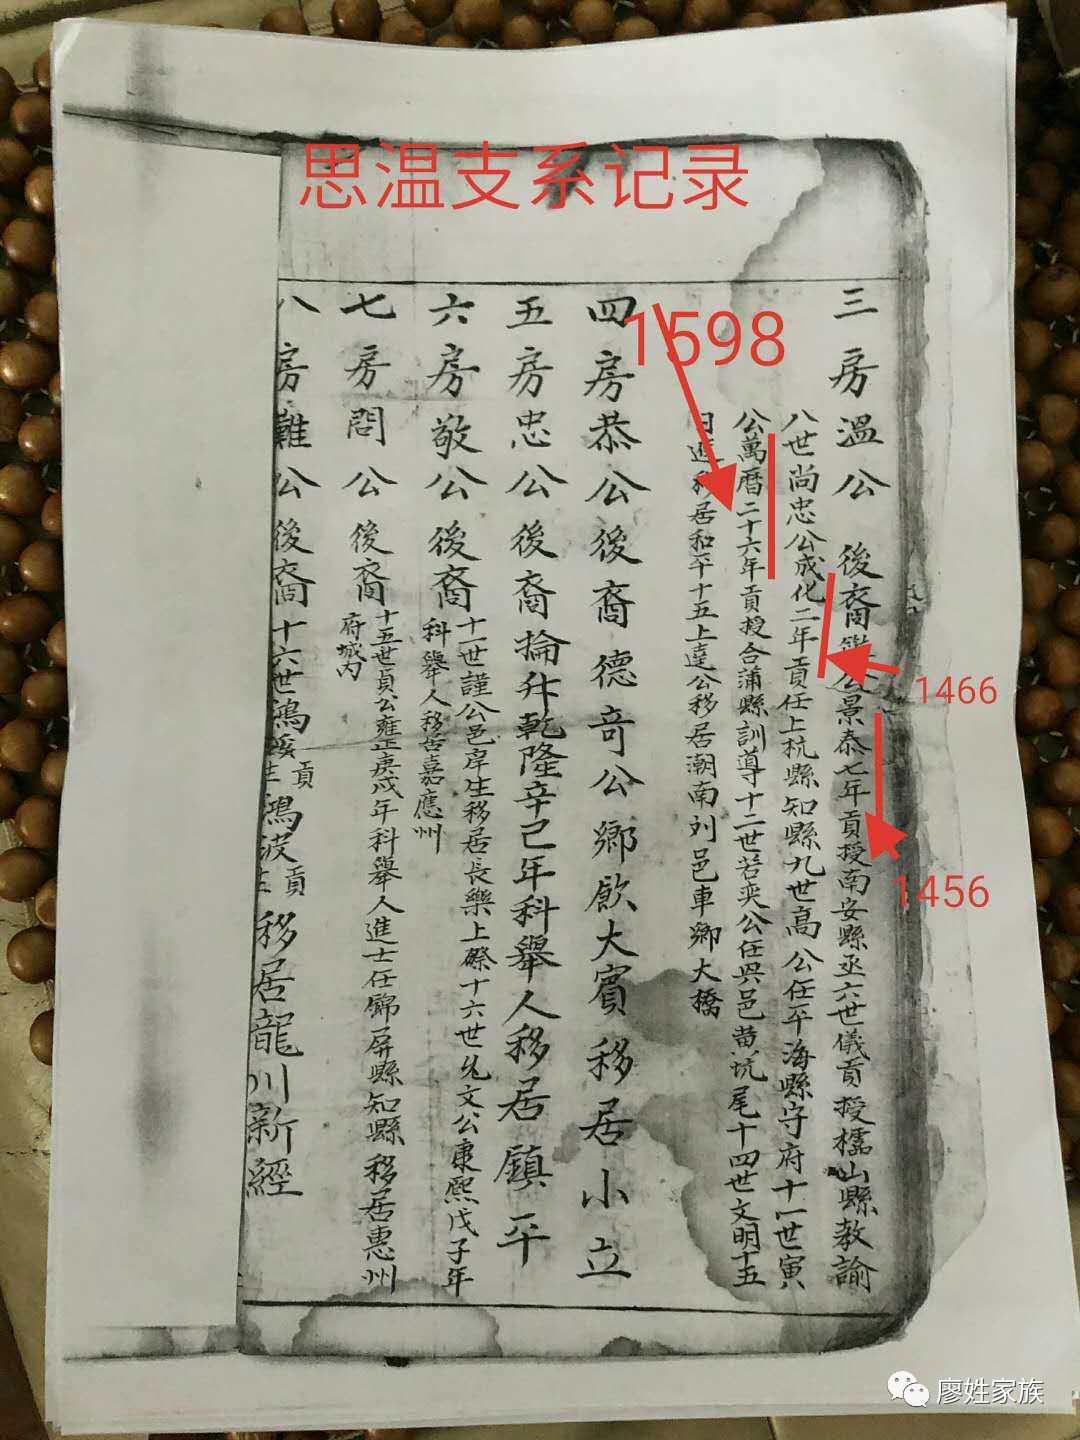 思温支系记录
三房溫公 後裔鑑公景泰七年貢授南安縣丞六世儀貢授檽山縣教諭
八世尚忠公成化二年貢任上杭縣知縣九世高公任平海縣守府十一世寅
公萬曆二十六年貢授合蒲縣訓導十二世若奕公任興邑黄坑尾十四世文明十五
日進移居和平十五上達公移居潮南刘邑車鄉大橋
四房恭公後裔德奇公鄉飲大賓移居小立
五房忠公後裔掄升乾隆辛己年科舉人移居鎮平
六房敬公後裔十一世謹公邑庠生移居長樂上磜十六世允文公康熙戊子年
科舉人移居嘉應州
七房問公後裔十五世貞公雍正庚戌年科舉人進士任錦屏縣知縣移居惠州
府城內
八房難公後裔十六世鴻 貢生鴻波貢生移居龍川新經
1598
1466
1456
廖姓家族